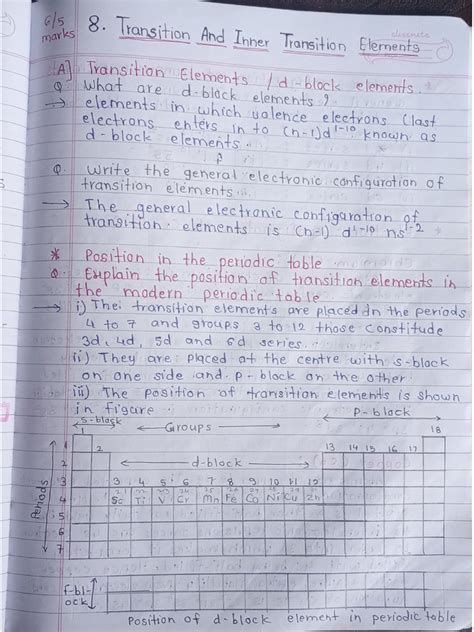 6/5
marks
8. Transition And Inner Transition Elements
A] Transition Elements / d-block elements.
Q. What are d-block elements?
→ elements in which valence electrons (last
electrons enters in to (n-1)d¹⁻¹⁰ known as
d-block elements.
f
Q. Write the general electronic configuration of
transition elements.
→ The general electronic configuration of
transition elements is (n-1) d¹⁻¹⁰ ns¹⁻²
* Position in the periodic table
Q. Explain the position of transition elements in
the modern periodic table
→ i) The transition elements are placed in the periods
4 to 7 and groups 3 to 12 those constitude
3d, 4d, 5d and 6d series.
ii) They are placed at the centre with s-block
on one side and p-block on the other.
iii) The position of transition elements is shown
in figure.
s-block ← Groups → p-block
1 18
2 13 14 15 16 17
← d-block →
3 4 5 6 7 8 9 10 11 12
Sc Ti V Cr Mn Fe Co Ni Cu Zn
Periods
1
2
3
4
5
6
7
f-bl-
ock
Position of d-block element in periodic table